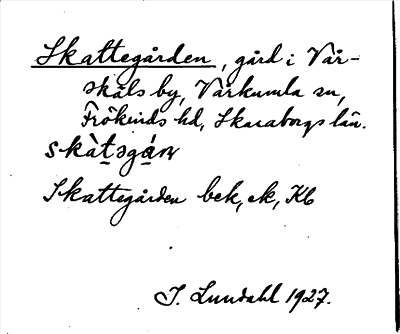 Skattegården, gård i Vår-
skäls by, Vårkumla sn,
Frökinds hd, Skaraborgs län.
Skattegården bek, ek, Kb
J. Lundahl 1927.